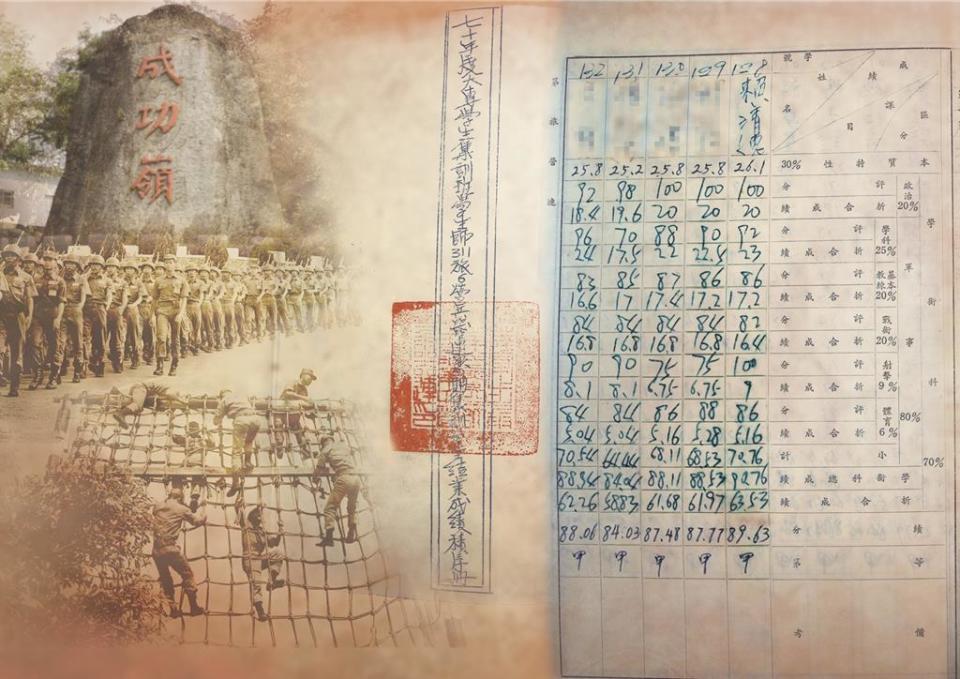 成功嶺
七十年度大專學生集訓班學生師311旅 結業成績
第 旅 營 連
區分 課目 成績 姓名 學號 128 129 130 131 132
賴清德
本質特性 30% 26.1 25.8 25.8 25.2 25.8
學術科 70%
軍事 80%
政治 20% 評分 100 100 100 98 92
折合成績 20 20 20 19.6 18.4
學科 25% 評分 92 90 88 70 96
折合成績 23 22.5 22 17.5 24
基本教練 20% 評分 86 86 87 85 83
折合成績 17.2 17.2 17.4 17 16.6
戰術 20% 評分 82 84 84 84 84
折合成績 16.4 16.8 16.8 16.8 16.8
射擊 9% 評分 100 75 75 90 90
折合成績 9 6.75 6.75 8.1 8.1
體育 6% 評分 86 88 86 84 84
折合成績 5.16 5.28 5.16 5.04 5.04
小計 70.76 68.53 68.11 64.44 70.54
學術科總成績 90.76 88.53 88.11 84.04 88.94
折合成績 63.53 61.97 61.68 58.83 62.26
績分 89.63 87.77 87.48 84.03 88.06
等第 甲 甲 甲 甲 甲
備考